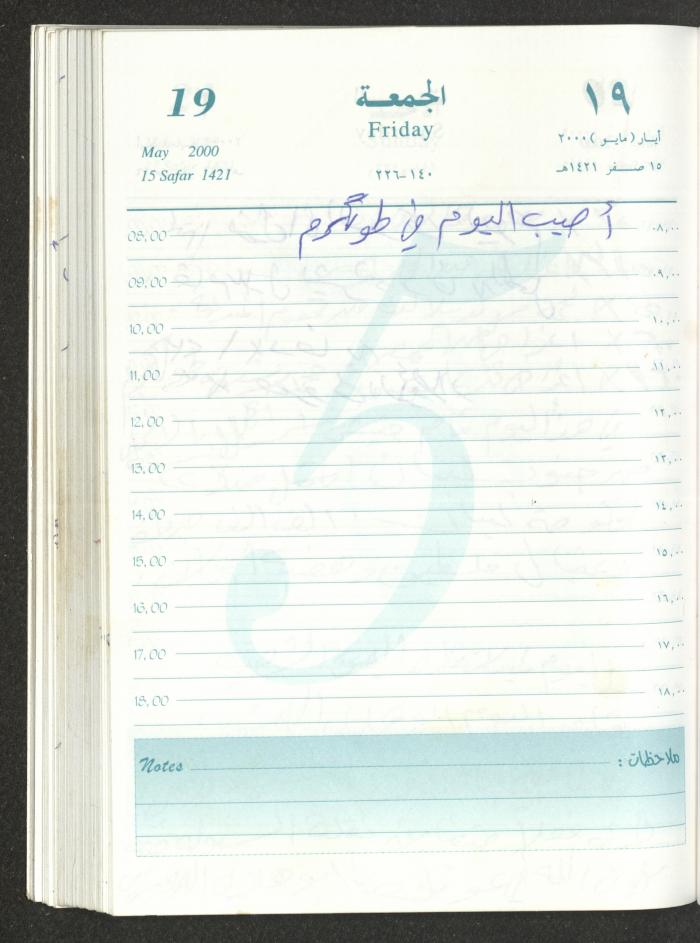 19 الجمعة ١٩
Friday
May 2000 أيار (مايو) ٢٠٠٠
15 Safar 1421 ٢٢٦-١٤٠ ١٥ صفر ١٤٢١هـ
أصيب اليوم في طولكرم
08,00 ٠٨,٠٠
09,00 ٠٩,٠٠
10,00 ١٠,٠٠
11,00 ١١,٠٠
12,00 ١٢,٠٠
13,00 ١٣,٠٠
14,00 ١٤,٠٠
15,00 ١٥,٠٠
16,00 ١٦,٠٠
17,00 ١٧,٠٠
18,00 ١٨,٠٠
Notes ملاحظات :